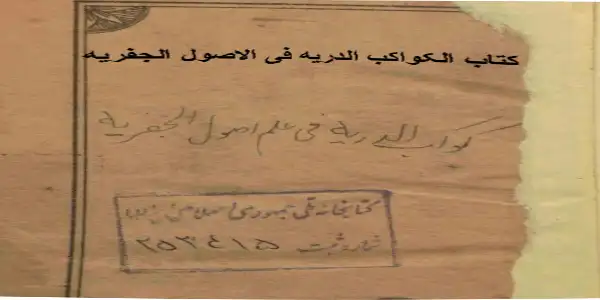 كتاب الكواكب الدريه فى الاصول الجفريه
كواكب الدرية فی علم اصول الجفرية
کتابخانه ملی جمهوری اسلامی ایران
شماره ثبت ۲۵۳۴۱۵